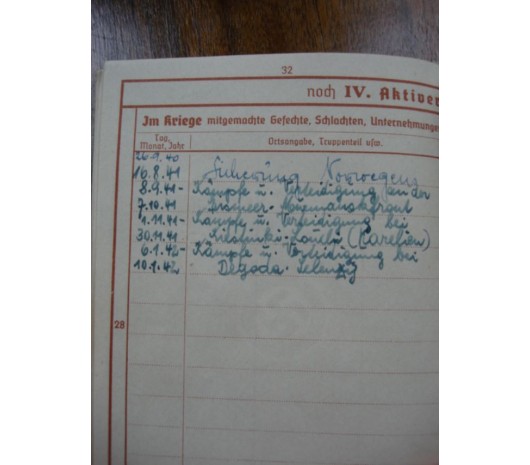 32
noch IV. Aktiver
Im Kriege mitgemachte Gefechte, Schlachten, Unternehmunge
Tag, Monat, Jahr
Ortsangabe, Truppenteil usw.
16.8.41 Sicherung Norwegens
8.9.41- Kämpfe u. Verteidigung an der
7.10.41
1.11.41- Kämpfe u. Verteidigung bei
30.11.41 (Karelien)
6.1.42- Kämpfe u. Verteidigung bei
10.1.42
28